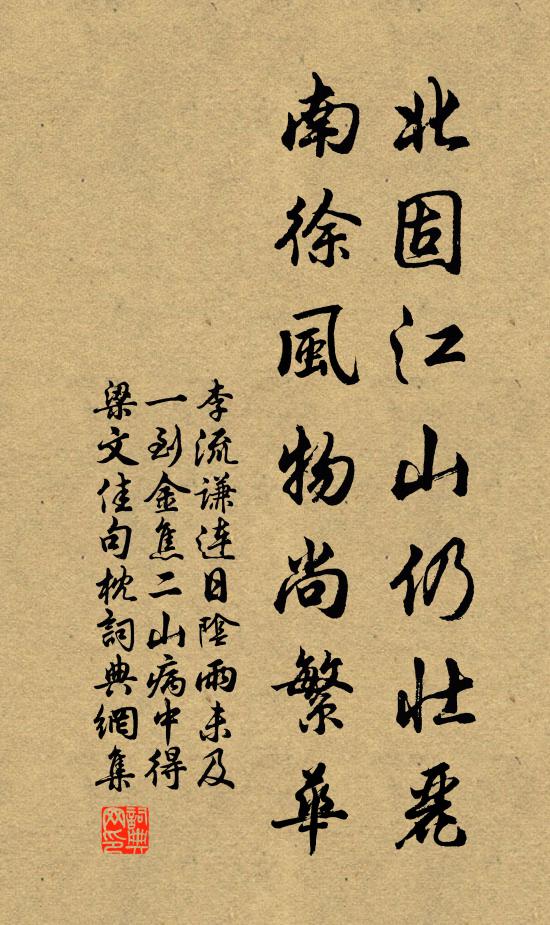 北固江山仍壯麗
南徐風物尚繁華
李流謙連日陰雨未及
一到金焦二山病中得
梁文佳句枕詞典網集
詞典網印